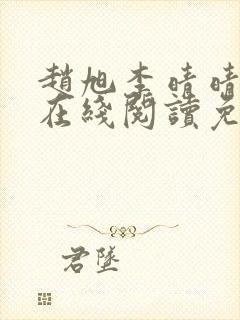 趙旭李晴晴
在綫閱讀免
君墜